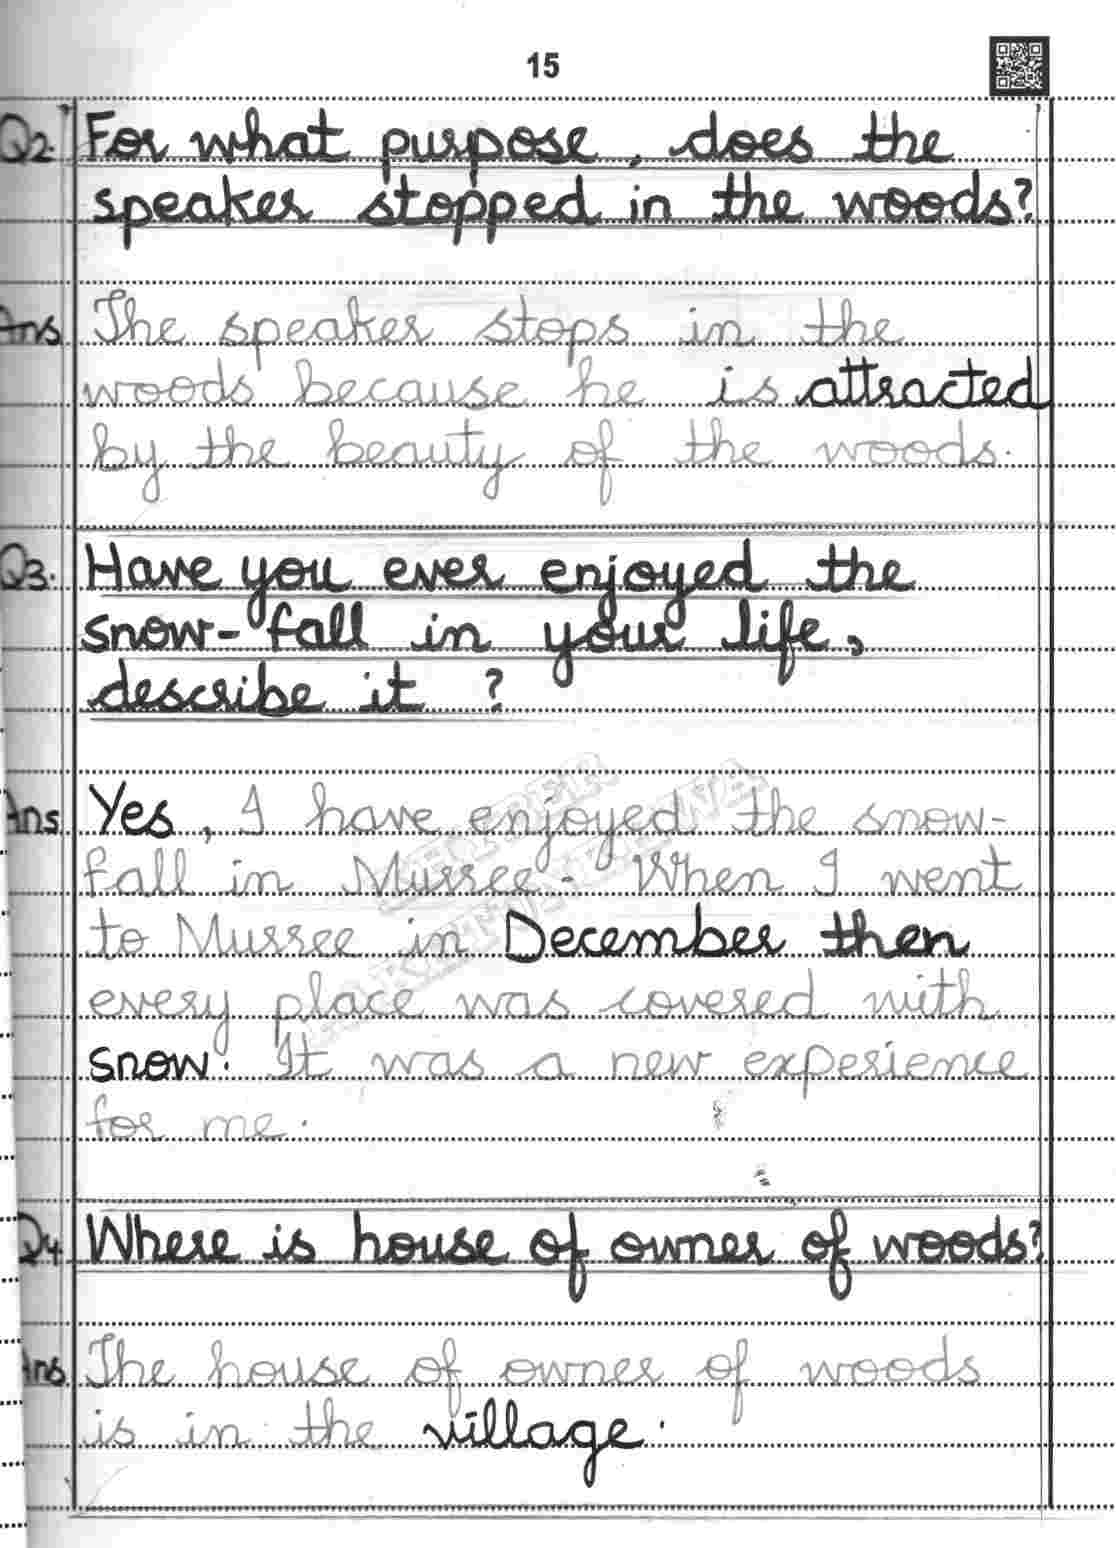 15
Q2. For what purpose, does the
speaker stopped in the woods?
Ans The speaker stops in the
woods because he is attracted
by the beauty of the woods.
Q3. Have you ever enjoyed the
snow-fall in your life,
describe it ?
Ans Yes, I have enjoyed the snow-
fall in Mussree. When I went
to Mussree in December then
every place was covered with
snow. It was a new experience
for me.
Q4. Where is house of owner of woods?
Ans The house of owner of woods
is in the village.